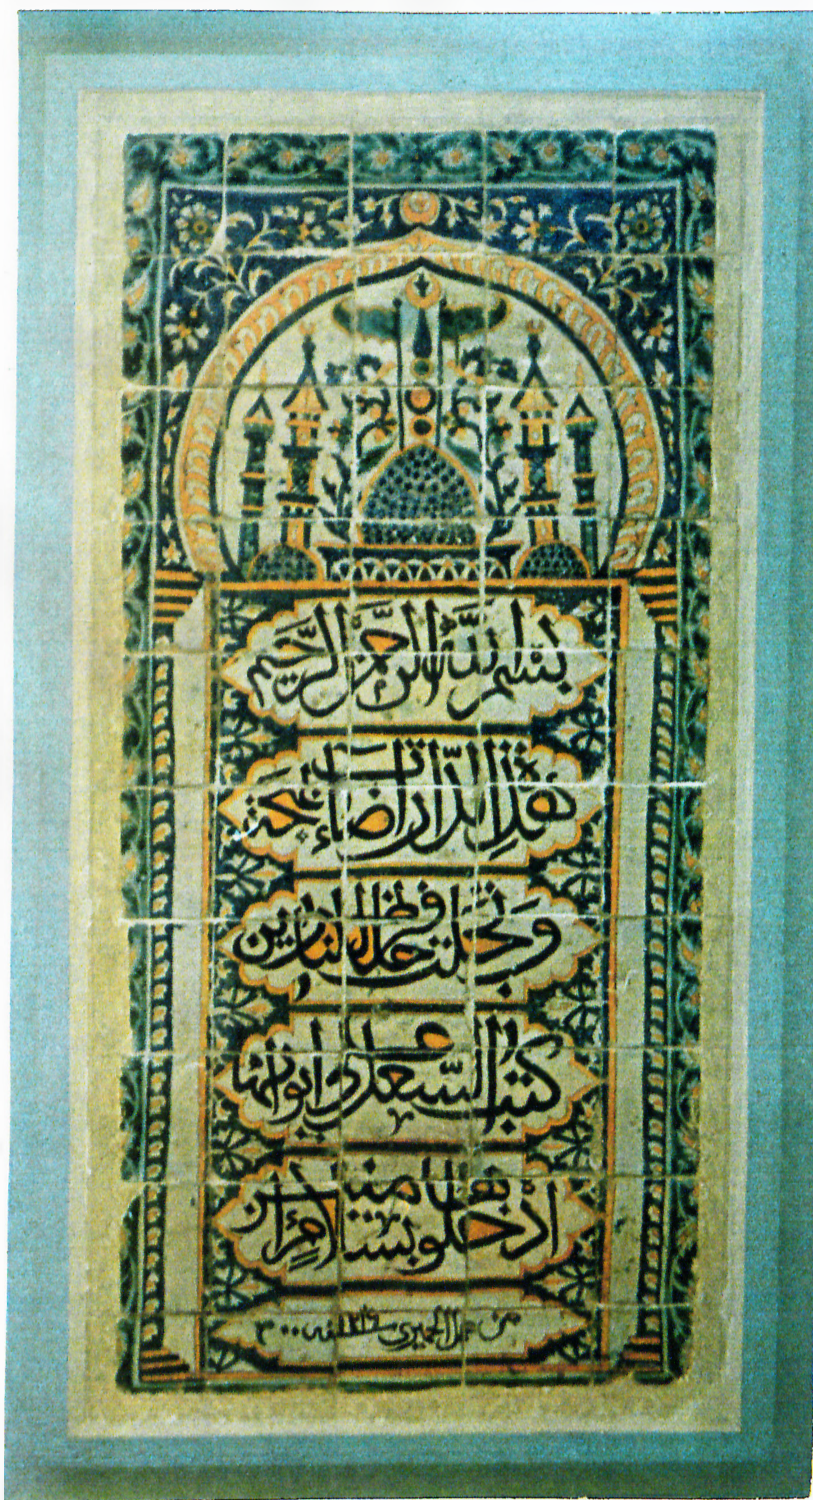 بسم الله الرحمن الرحيم
هذه الدار اضاءت بهجة
وتجلت للناظرين
كتب السعد على ابوابها
ادخلوها بسلام امنين
من عمل الخميري